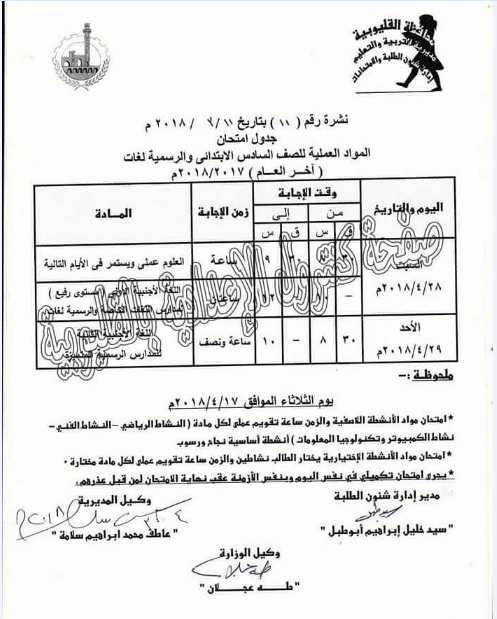 محافظة القليوبية
مديرية التربية والتعليم
إدارة شئون الطلبة والامتحانات
نشرة رقم ( ١١ ) بتاريخ ١١ / ٢٠١٨ م
جدول امتحان
المواد العملية للصف السادس الابتدائى والرسمية لغات
( آخر العــام ) ٢٠١٨/٢٠١٧م
اليوم والتاريخ
وقت الإجابة
زمن الإجابة
المــادة
من
إلى
ق
س
ق
س
السبت
٢٠١٨/٤/٢٨م
٩
ساعة
العلوم عملى ويستمر فى الأيام التالية
–
١٢
اللغة الأجنبية الأولى (مستوى رفيع )
لمدارس اللغات الخاصة والرسمية لغات
الأحد
٢٠١٨/٤/٢٩م
٣٠
٨
–
١٠
ساعة ونصف
اللغة الأجنبية الثانية
للمدارس الرسمية المتميزة
صفحة كنترول الإعدادية القليوبية
ملحوظة :-
يوم الثلاثاء الموافق ٢٠١٨/٤/١٧م
*امتحان مواد الأنشطة اللاصفية والزمن ساعة تقويم عملى لكل مادة ( النشاط الرياضي – النشاط الفني –
نشاط الكمبيوتر وتكنولوجيا المعلومات ) أنشطة أساسية نجاح ورسوب
*امتحان مواد الأنشطة الإختيارية يختار الطالب نشاطين والزمن ساعة تقويم عملى لكل مادة مختارة .
*يجرى امتحان تكميلي في نفس اليوم وبنفس الأزمنة عقب نهاية الامتحان لمن قبل عذرهم.
مدير إدارة شئون الطلبة
وكيل المديرية
"سيد خليل إبراهيم أبوطبل "
" عاطف محمد ابراهيم سلامة "
وكيل الوزارة
" طــه عجــلان "